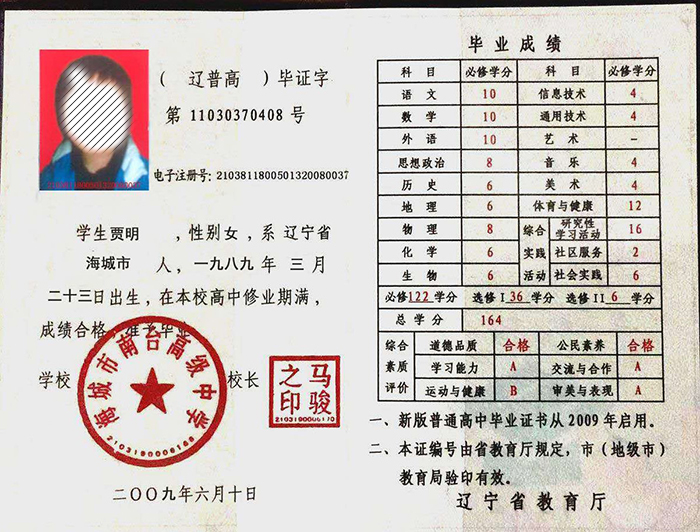 （ 辽普高 ）毕证字
第 11030370408 号
电子注册号: 2103811800501320080037
学生贾明 ,性别女,系 辽宁省
海城市 人,一九八九年 三 月
二十三日出生,在本校高中修业期满,
成绩合格,准予毕业
学校 校长
海城市南台高级中学
2103190006168
马骏之印
2103190006170
二〇〇九年六月十日
毕业成绩
科 目 必修学分 科 目 必修学分
语 文 10 信息技术 4
数 学 10 通用技术 4
外 语 10 艺 术 –
思想政治 8 音 乐 4
历 史 6 美 术 4
地 理 6 体育与健康 12
物 理 8 综合实践活动 研究性学习活动 16
化 学 6 社区服务 2
生 物 6 社会实践 6
必修122学分 选修 I 36 学分 选修 II 6 学分
总 学 分 164
综合素质评价 道德品质 合格 公民素养 合格
学习能力 A 交流与合作 A
运动与健康 B 审美与表现 A
一、新版普通高中毕业证书从 2009 年启用。
二、本证编号由省教育厅规定，市（地级市）
教育局验印有效。
辽宁省教育厅